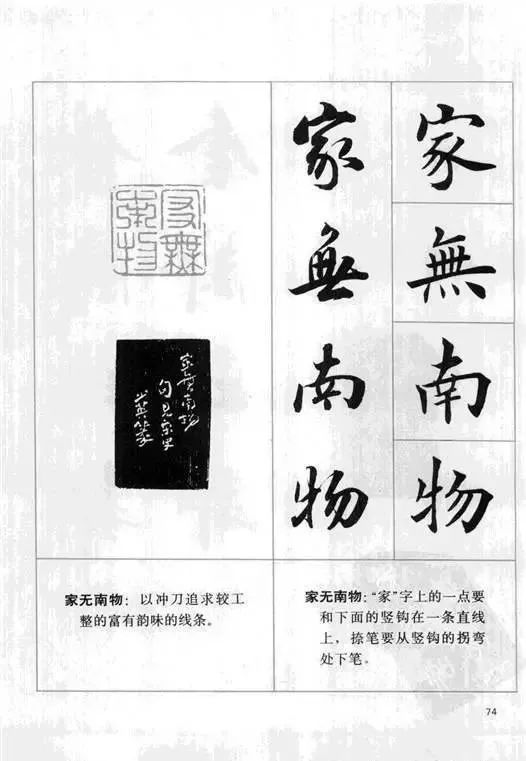 家無南物
家無南物
家無南物
句見宋史
家无南物：以冲刀追求较工
整的富有韵味的线条。
家无南物：“家”字上的一点要
和下面的竖钩在一条直线
上，捺笔要从竖钩的拐弯
处下笔。
74